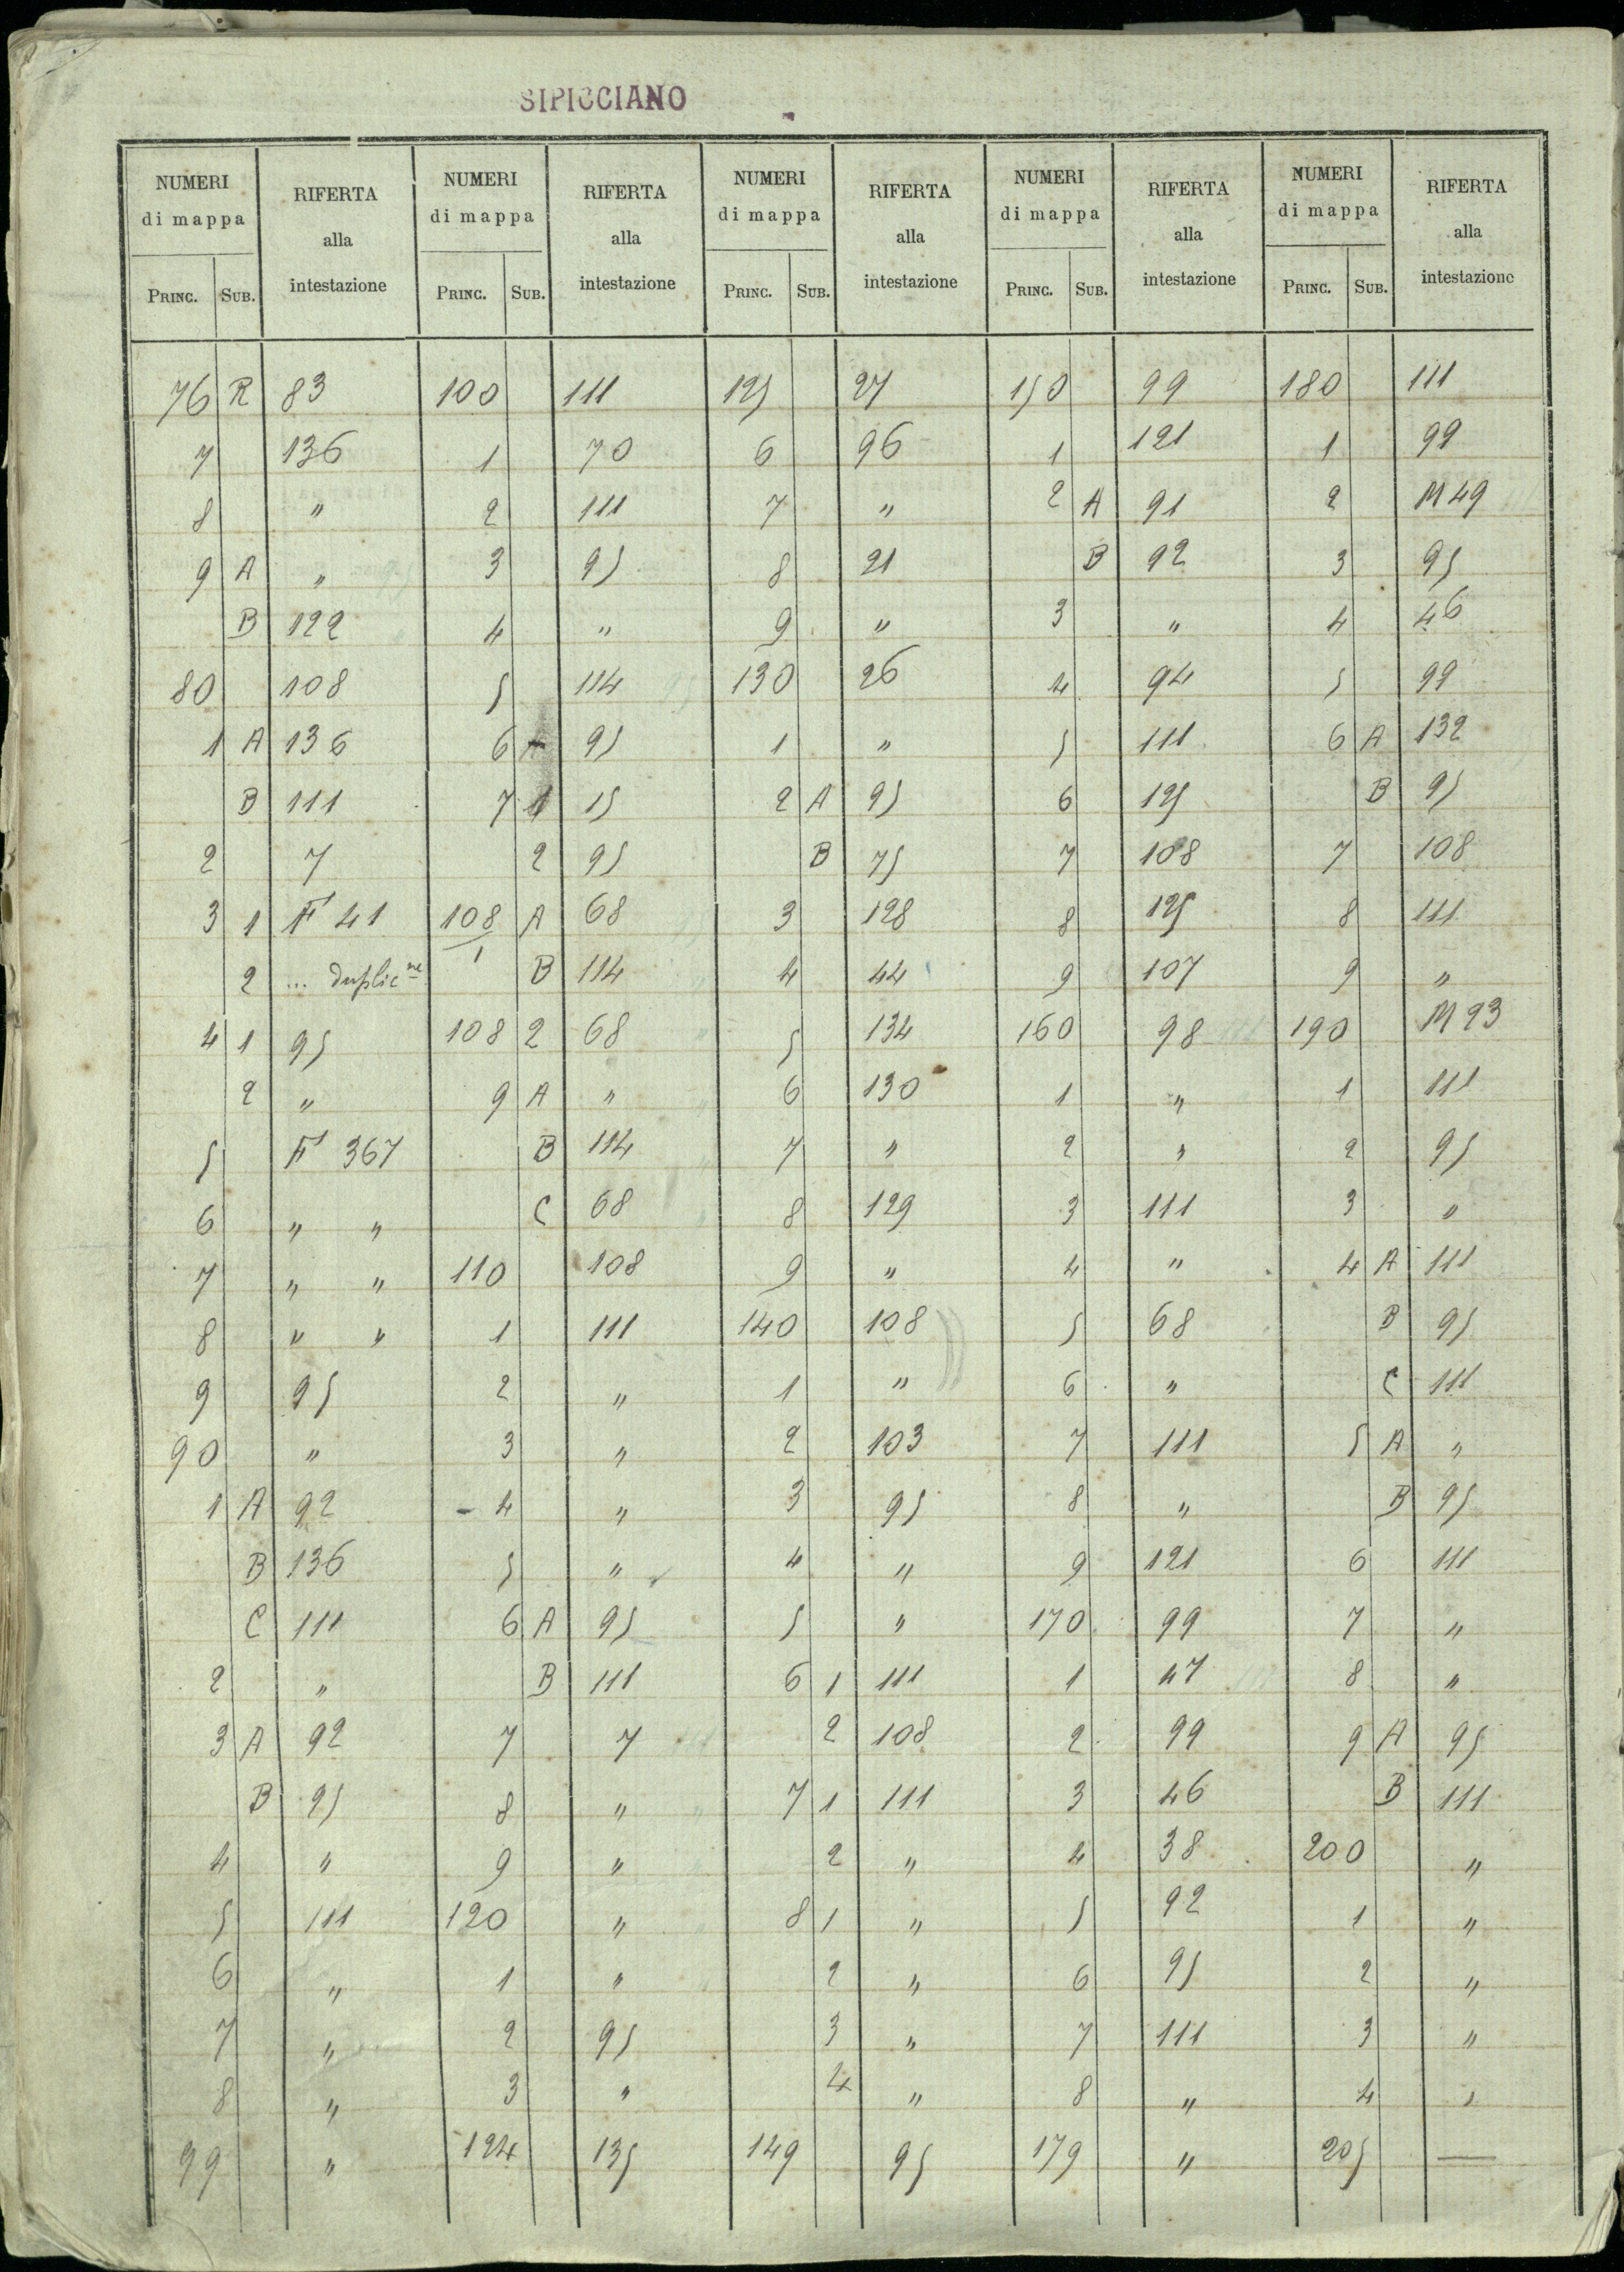 SIPICCIANO
NUMERI di mappa RIFERTA alla intestazione NUMERI di mappa RIFERTA alla intestazione NUMERI di mappa RIFERTA alla intestazione NUMERI di mappa RIFERTA alla intestazione NUMERI di mappa RIFERTA alla intestazione
PRINC. SUB. PRINC. SUB. PRINC. SUB. PRINC. SUB. PRINC. SUB.
76 R 83 100 111 125 27 150 99 180 111
7 136 1 70 6 96 1 121 1 99
8 " 2 111 7 " 2 A 91 2 M 49
9 A " 3 95 8 21 B 92 3 95
B 122 4 " 9 " 3 " 4 46
80 108 5 114 130 26 4 94 5 99
1 A 136 6 95 1 " 5 111 6 A 132
B 111 7 1 15 2 A 95 6 125 B 95
2 7 2 95 B 75 7 108 7 108
3 1 F 41 108/1 A 68 3 128 8 125 8 111
2 ... duplic ne B 114 4 44 9 107 9 "
4 1 95 108 2 68 5 134 160 98 190 M 23
2 " 9 A " 6 130 1 " 1 111
5 F 367 B 114 7 " 2 " 2 95
6 " " C 68 8 129 3 111 3 "
7 " " 110 108 9 " 4 " 4 A 111
8 " " 1 111 140 108 5 68 B 95
9 95 2 " 1 " 6 " C 111
90 " 3 " 2 103 7 111 5 A "
1 A 92 - 4 " 3 95 8 " B 95
B 136 5 " 4 " 9 121 6 111
C 111 6 A 95 5 " 170 99 7 "
2 " B 111 6 1 111 1 47 8 "
3 A 92 7 7 2 108 2 99 9 A 95
B 95 8 " 7 1 111 3 46 B 111
4 " 9 " 2 " 4 38 200 "
5 111 120 " 8 1 " 5 92 1 "
6 " 1 " 2 " 6 95 2 "
7 " 2 95 3 " 7 111 3 "
8 " 3 " 4 " 8 " 4 "
99 " 124 135 149 95 179 " 205 —